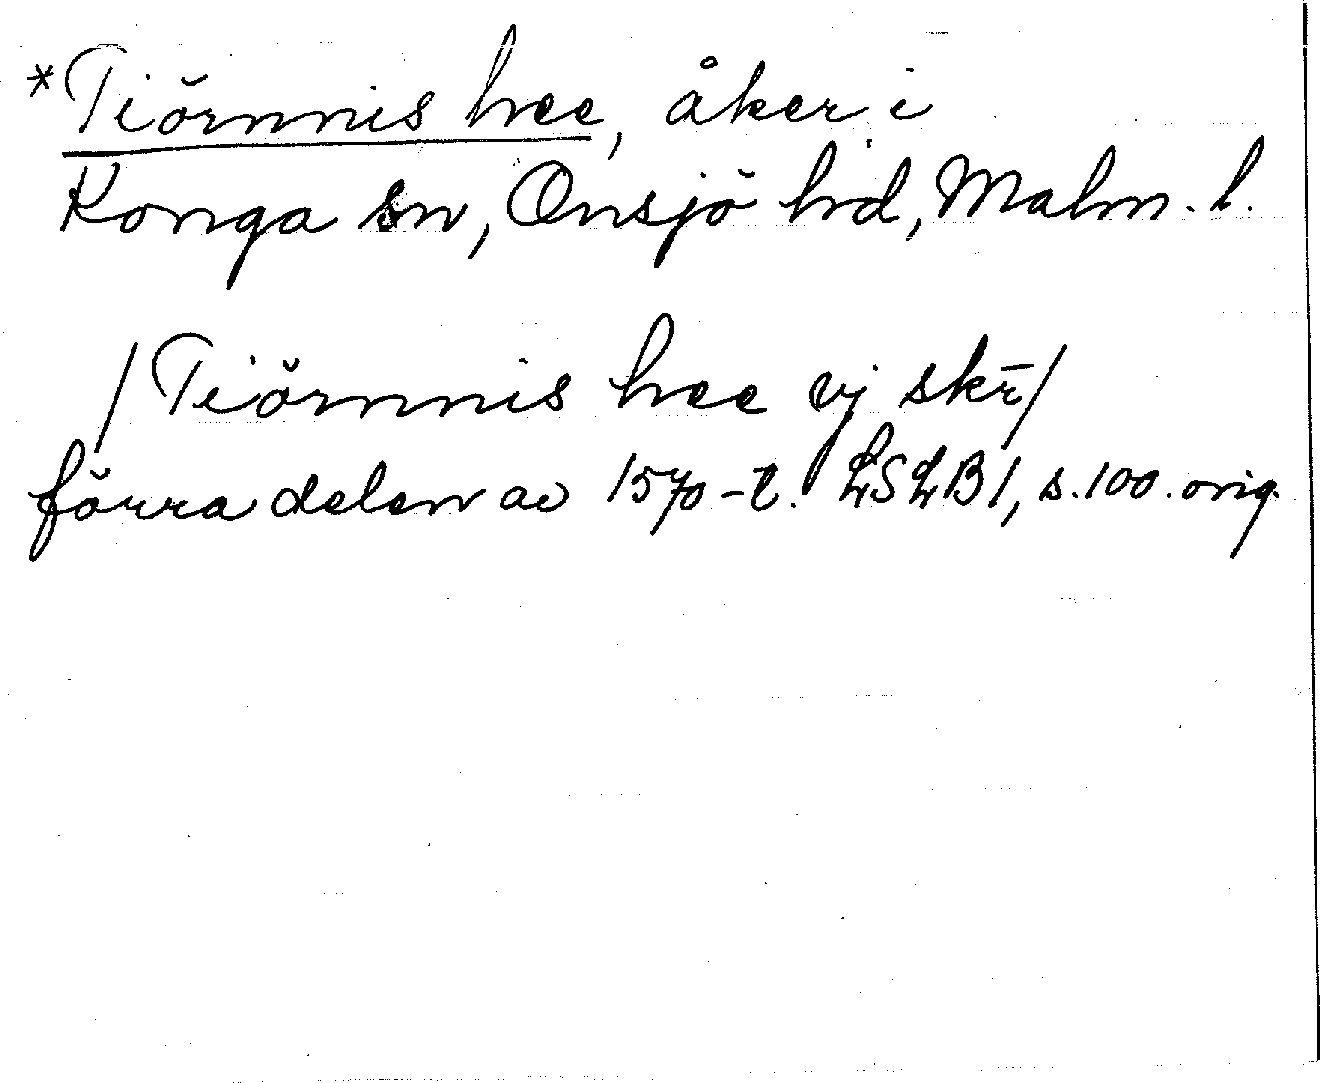 *Tiörnnis hee, åker i
Konga sn, Onsjö hd, Malm. l.
/Tiörnnis hee vj skr̄/
förra delen av 1570-t. LSLB1, s.100. orig.